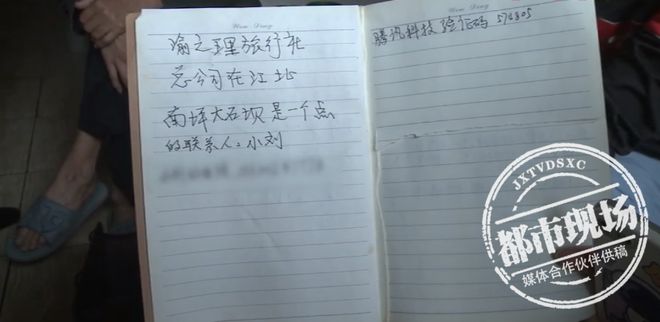 渝之理旅行社
总公司在江北
南坪大石坝是一个点
的联系人：小刘
腾讯科技验证码 576805
JXTVDSXC
都市现场
媒体合作伙伴供稿